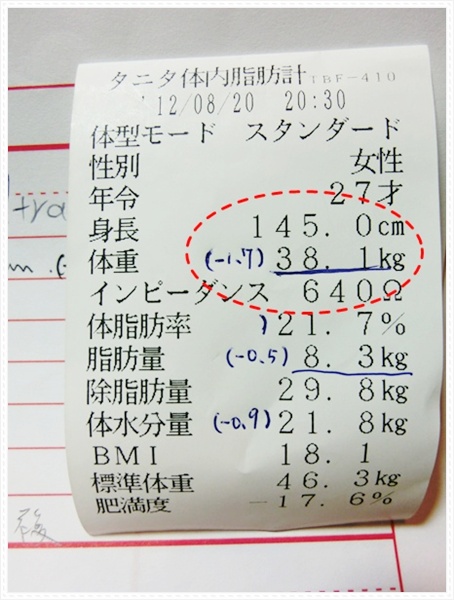 タニタ体内脂肪計 TBF-410
'12/08/20 20:30
体型モード スタンダード
性別 女性
年令 27才
身長 145.0cm
体重 (-1.7) 38.1kg
インピーダンス 640Ω
体脂肪率 ) 21.7%
脂肪量 (-0.5) 8.3kg
除脂肪量 29.8kg
体水分量 (-0.9) 21.8kg
BMI 18.1
標準体重 46.3kg
肥満度 -17.6%